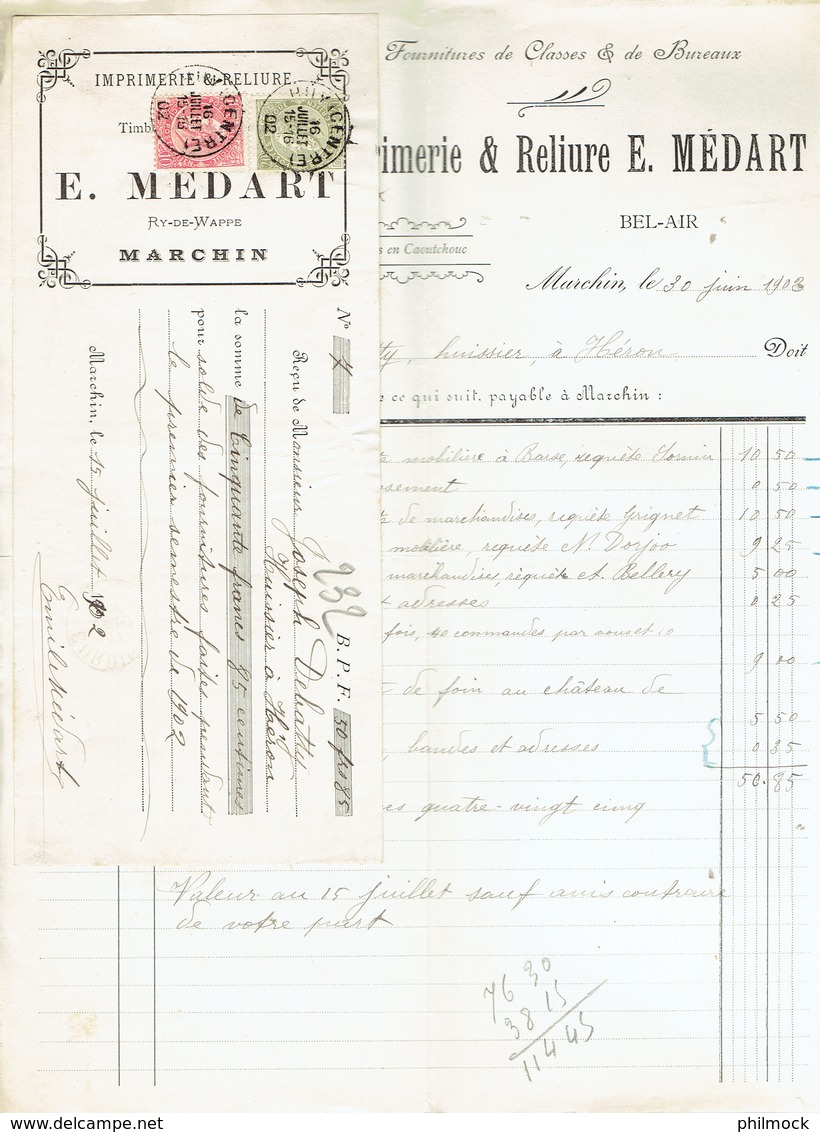 IMPRIMERIE & RELIURE
Timb
E. MÉDART
RY-DE-WAPPE
MARCHIN
CENTRE
16
JUILLET
15-16
02
CENTRE
16
JUILLET
15-16
02
Nº 7 B. P. F. 50 frs 85
232
Reçu de Monsieur Joseph Debatty
Huissier à Héron
la somme de Cinquante francs 85 centimes
pour solde des fournitures faites pendant
le premier semestre de 1902
Marchin, le 15 juillet 1902
Emile Médart
Fournitures de Classes & de Bureaux
rimerie & Reliure E. MÉDART
BEL-AIR
s en Caoutchouc
Marchin, le 30 juin 1902
ty, huissier, à Héron Doit
e ce qui suit, payable à Marchin :
mobilière à Barse, requête Sornin 10 50
sement 0 50
de marchandises, requête Grignet 10 50
mobilière, requête N. Dorjoo 9 25
marchandises, requête et. Bellery 5 00
adresses 0 25
fois, 40 commandes par vous et 10
9 00
de foin au château de
5 50
, bandes et adresses 0 35
50.85
es quatre-vingt cinq
Valeur au 15 juillet sauf avis contraire
de votre part
76 30
38 15
114 45
philmock
philmock.com